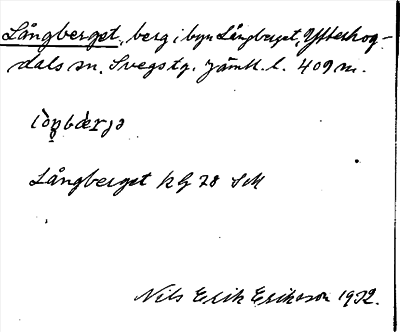 Långberget, berg i byn Långberget, Ytterhog-
dals sn. Svegs tg. Jämtl. l. 409 m.
Långberget kg 28 SM
Nils Erik Eriksson 1932.